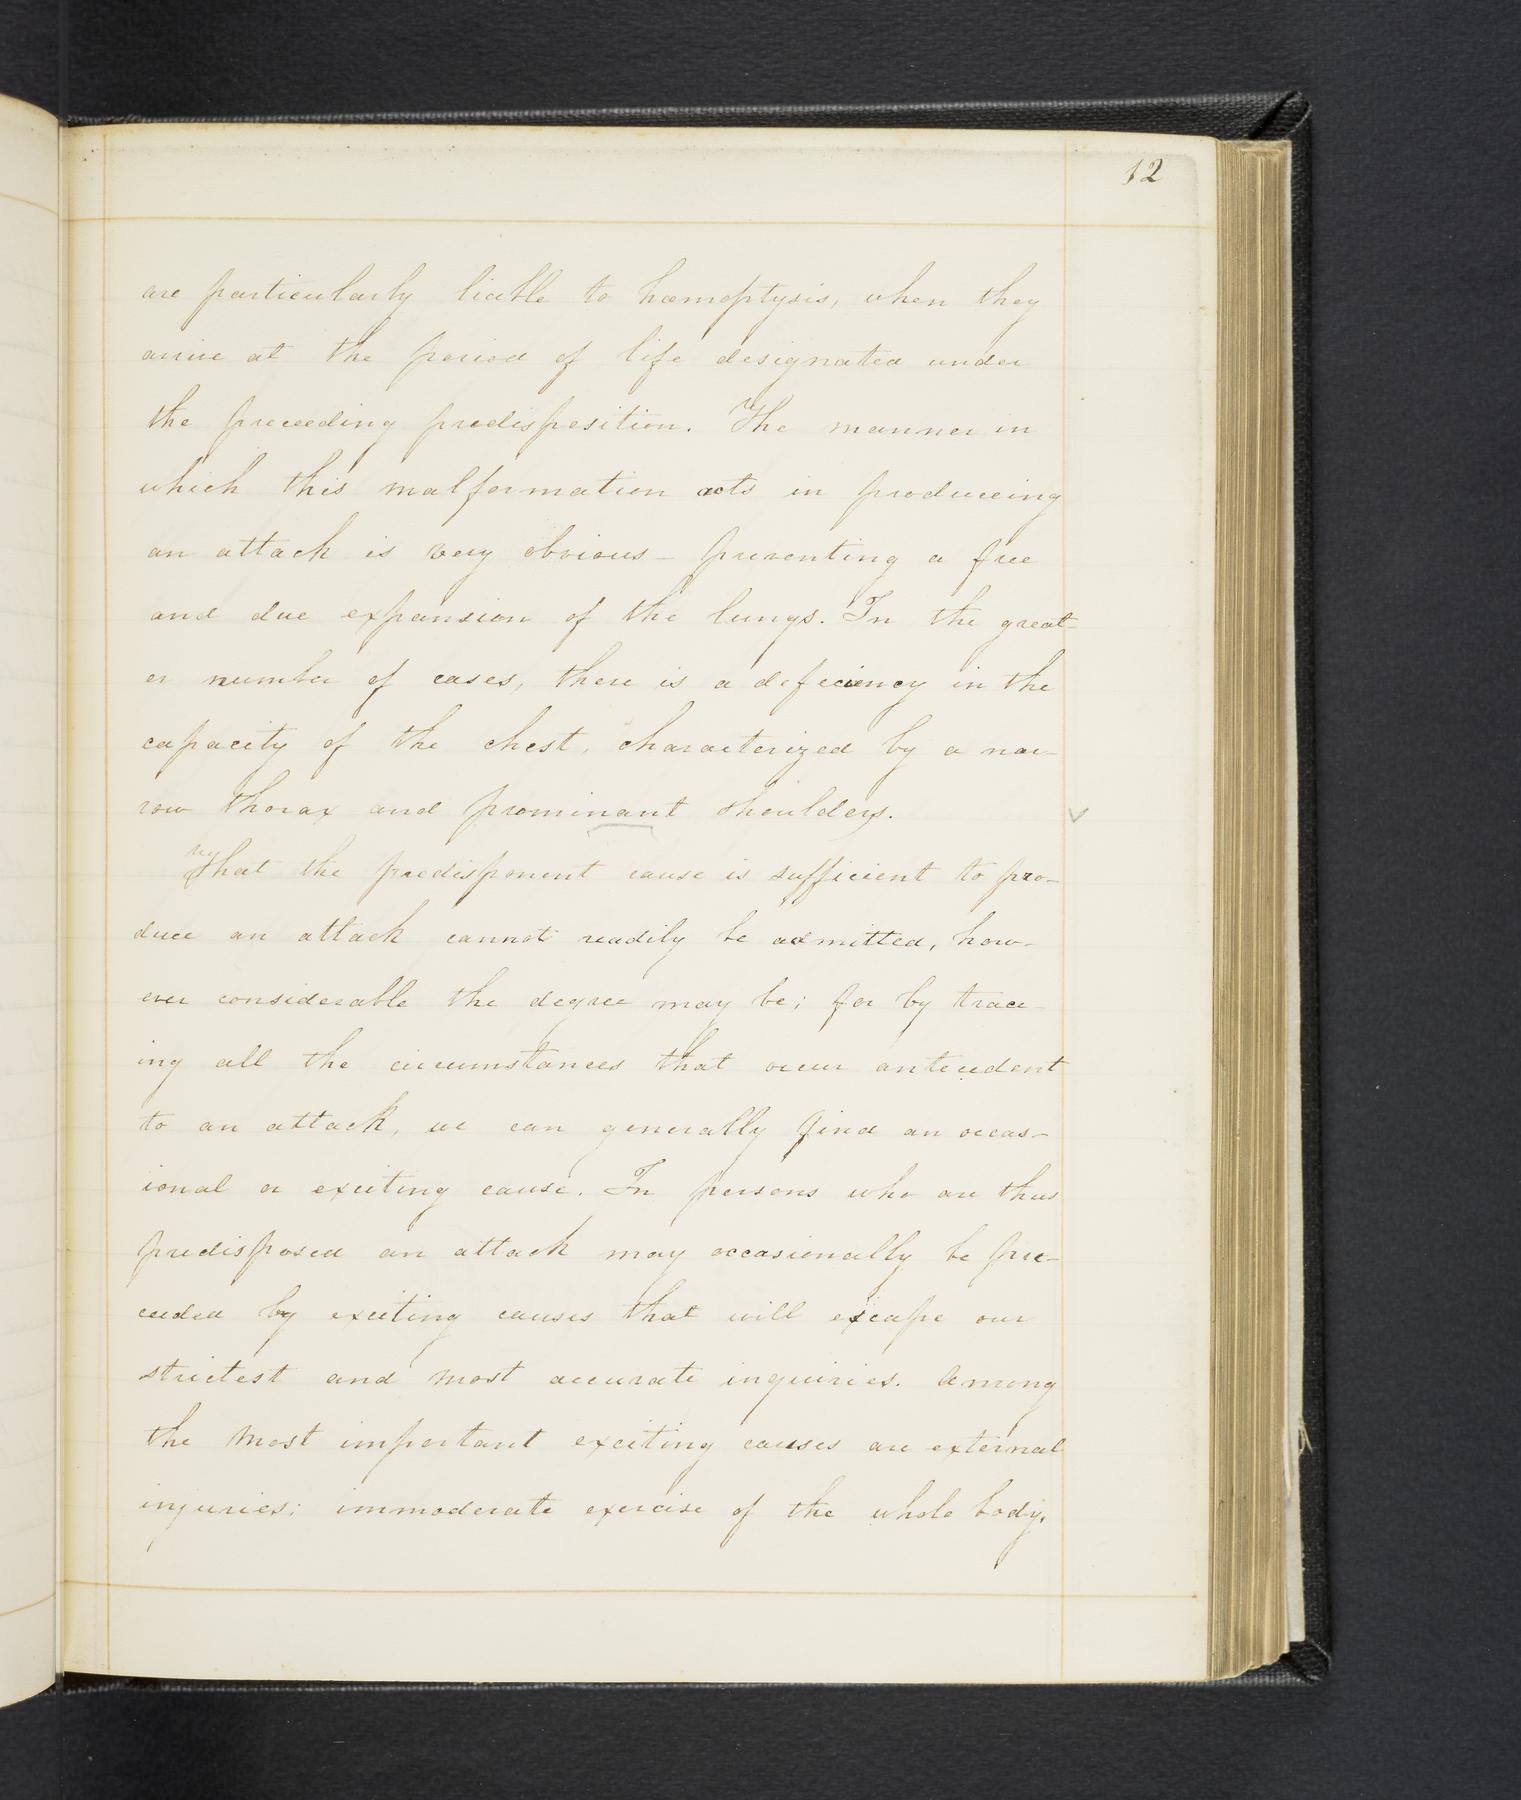 12
are particularly liable to hæmoptysis, when they
arrive at the period of life designated under
the preceeding predisposition. The manner in
which this malformation acts in produceing
an attack is very obvious – preventing a free
and due expansion of the lungs. In the great-
er number of cases, there is a deficiency in the
capacity of the chest, characterized by a nar-
row thorax and prominant shoulders.
That the predisponent cause is sufficient to pro-
duce an attack cannot readily be admitted, how-
ever considerable the degree may be; for by trace-
ing all the circumstances that occur antecedent
to an attack, we can generally find an occas-
ional or exciting cause. In persons who are thus
predisposed an attack may occasionally be pre-
ceeded by exciting causes that will excape our
strictest and most accurate inquiries. Among
the most important exciting causes are external
injuries: immoderate exercise of the whole body,